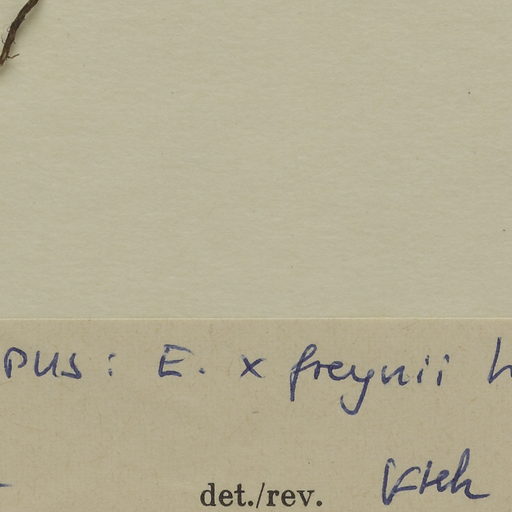 PUS: E. x freynii
det./rev.